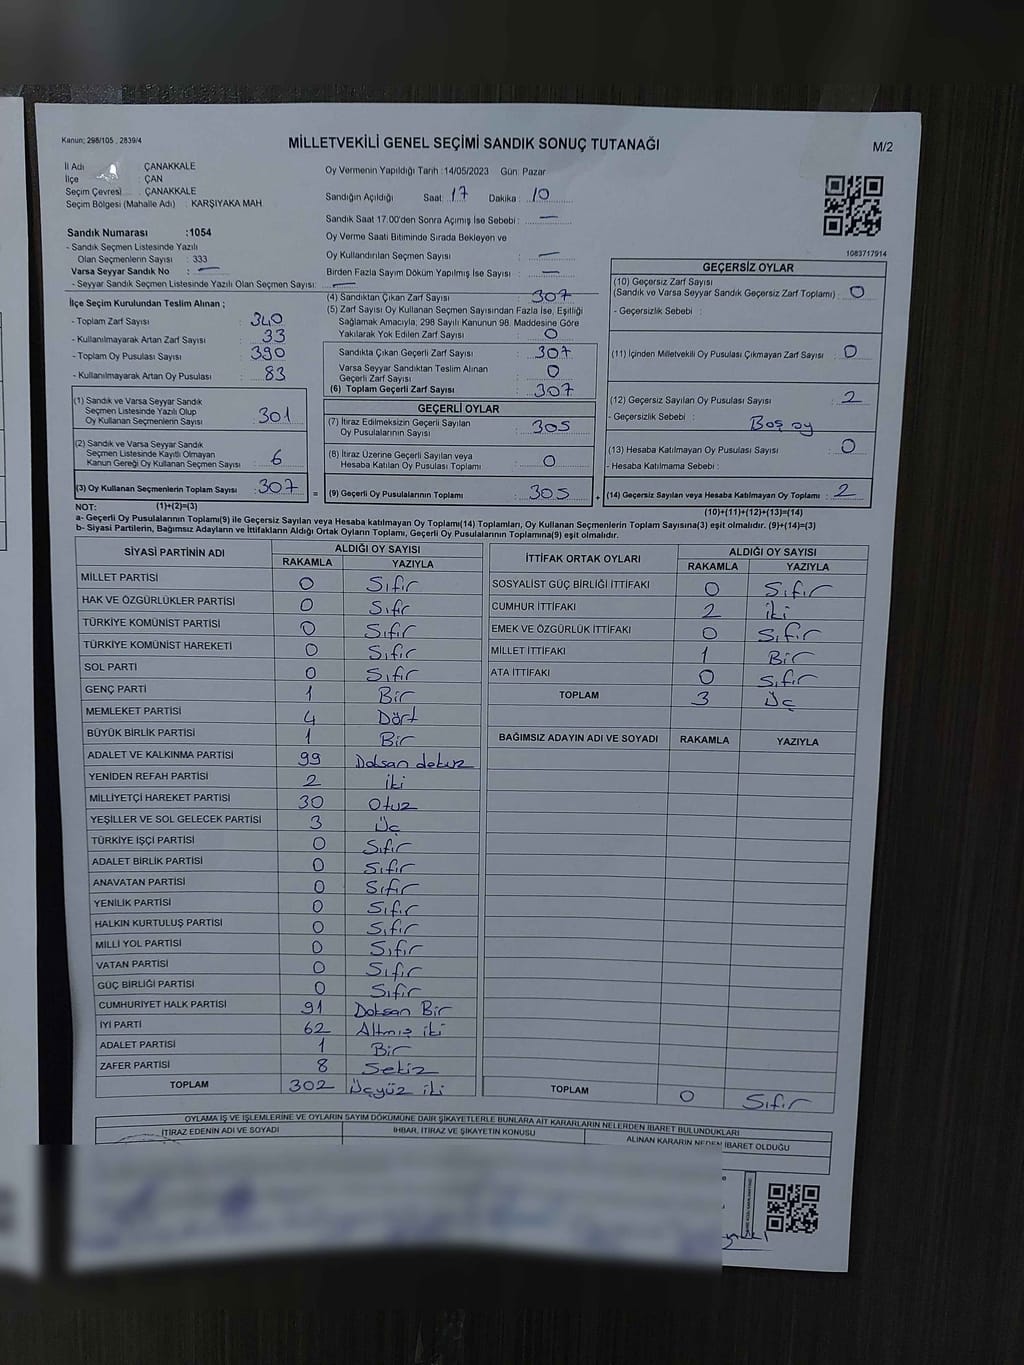 Kanun; 298/105 , 2839/4
MİLLETVEKİLİ GENEL SEÇİMİ SANDIK SONUÇ TUTANAĞI
M/2
İl Adı ÇANAKKALE
İlçe ÇAN
Seçim Çevresi ÇANAKKALE
Seçim Bölgesi (Mahalle Adı) : KARŞIYAKA MAH
Sandık Numarası :1054
- Sandık Seçmen Listesinde Yazılı
Olan Seçmenlerin Sayısı : 333
Varsa Seyyar Sandık No : —
- Seyyar Sandık Seçmen Listesinde Yazılı Olan Seçmen Sayısı: —
Oy Vermenin Yapıldığı Tarih :14/05/2023 Gün: Pazar
Sandığın Açıldığı Saat: 17 Dakika : 10
Sandık Saat 17.00'den Sonra Açımış İse Sebebi : —
Oy Verme Saati Bitiminde Sırada Bekleyen ve
Oy Kullandırılan Seçmen Sayısı : —
Birden Fazla Sayım Döküm Yapılmış İse Sayısı : —
1083717914
İlçe Seçim Kurulundan Teslim Alınan ;
- Toplam Zarf Sayısı : 340
- Kullanılmayarak Artan Zarf Sayısı : 33
- Toplam Oy Pusulası Sayısı : 390
- Kullanılmayarak Artan Oy Pusulası : 83
(1) Sandık ve Varsa Seyyar Sandık
Seçmen Listesinde Yazılı Olup
Oy Kullanan Seçmenlerin Sayısı : 301
(2) Sandık ve Varsa Seyyar Sandık
Seçmen Listesinde Kayıtlı Olmayan
Kanun Gereği Oy Kullanan Seçmen Sayısı : 6
(3) Oy Kullanan Seçmenlerin Toplam Sayısı : 307 =
(4) Sandıktan Çıkan Zarf Sayısı : 307
(5) Zarf Sayısı Oy Kullanan Seçmen Sayısından Fazla İse, Eşitliği
Sağlamak Amacıyla, 298 Sayılı Kanunun 98. Maddesine Göre
Yakılarak Yok Edilen Zarf Sayısı : 0
Sandıkta Çıkan Geçerli Zarf Sayısı : 307
Varsa Seyyar Sandıktan Teslim Alınan
Geçerli Zarf Sayısı : 0
(6) Toplam Geçerli Zarf Sayısı : 307
GEÇERLİ OYLAR
(7) İtiraz Edilmeksizin Geçerli Sayılan
Oy Pusulalarının Sayısı : 305
(8) İtiraz Üzerine Geçerli Sayılan veya
Hesaba Katılan Oy Pusulası Toplamı : 0
(9) Geçerli Oy Pusulalarının Toplamı : 305 +
GEÇERSİZ OYLAR
(10) Geçersiz Zarf Sayısı
(Sandık ve Varsa Seyyar Sandık Geçersiz Zarf Toplamı) : 0
- Geçersizlik Sebebi :
(11) İçinden Milletvekili Oy Pusulası Çıkmayan Zarf Sayısı : 0
(12) Geçersiz Sayılan Oy Pusulası Sayısı : 2
- Geçersizlik Sebebi : Boş oy
(13) Hesaba Katılmayan Oy Pusulası Sayısı : 0
- Hesaba Katılmama Sebebi :
(14) Geçersiz Sayılan veya Hesaba Katılmayan Oy Toplamı : 2
NOT: (1)+(2)=(3) (10)+(11)+(12)+(13)=(14)
a- Geçerli Oy Pusulalarının Toplamı(9) ile Geçersiz Sayılan veya Hesaba katılmayan Oy Toplamı(14) Toplamları, Oy Kullanan Seçmenlerin Toplam Sayısına(3) eşit olmalıdır. (9)+(14)=(3)
b- Siyasi Partilerin, Bağımsız Adayların ve İttifakların Aldığı Ortak Oyların Toplamı, Geçerli Oy Pusulalarının Toplamına(9) eşit olmalıdır.
SİYASİ PARTİNİN ADI ALDIĞI OY SAYISI
RAKAMLA YAZIYLA
MİLLET PARTİSİ 0 Sıfır
HAK VE ÖZGÜRLÜKLER PARTİSİ 0 Sıfır
TÜRKİYE KOMÜNİST PARTİSİ 0 Sıfır
TÜRKİYE KOMÜNİST HAREKETİ 0 Sıfır
SOL PARTİ 0 Sıfır
GENÇ PARTİ 1 Bir
MEMLEKET PARTİSİ 4 Dört
BÜYÜK BİRLİK PARTİSİ 1 Bir
ADALET VE KALKINMA PARTİSİ 99 Doksan dokuz
YENİDEN REFAH PARTİSİ 2 iki
MİLLİYETÇİ HAREKET PARTİSİ 30 Otuz
YEŞİLLER VE SOL GELECEK PARTİSİ 3 Üç
TÜRKİYE İŞÇİ PARTİSİ 0 Sıfır
ADALET BİRLİK PARTİSİ 0 Sıfır
ANAVATAN PARTİSİ 0 Sıfır
YENİLİK PARTİSİ 0 Sıfır
HALKIN KURTULUŞ PARTİSİ 0 Sıfır
MİLLİ YOL PARTİSİ 0 Sıfır
VATAN PARTİSİ 0 Sıfır
GÜÇ BİRLİĞİ PARTİSİ 0 Sıfır
CUMHURİYET HALK PARTİSİ 91 Doksan Bir
İYİ PARTİ 62 Altmış iki
ADALET PARTİSİ 1 Bir
ZAFER PARTİSİ 8 Sekiz
TOPLAM 302 Üçyüz iki
İTTİFAK ORTAK OYLARI ALDIĞI OY SAYISI
RAKAMLA YAZIYLA
SOSYALİST GÜÇ BİRLİĞİ İTTİFAKI 0 Sıfır
CUMHUR İTTİFAKI 2 iki
EMEK VE ÖZGÜRLÜK İTTİFAKI 0 Sıfır
MİLLET İTTİFAKI 1 Bir
ATA İTTİFAKI 0 Sıfır
TOPLAM 3 Üç
BAĞIMSIZ ADAYIN ADI VE SOYADI RAKAMLA YAZIYLA
TOPLAM 0 Sıfır
OYLAMA İŞ VE İŞLEMLERİNE VE OYLARIN SAYIM DÖKÜMÜNE DAİR ŞİKAYETLERLE BUNLARA AİT KARARLARIN NELERDEN İBARET BULUNDUKLARI
İTİRAZ EDENİN ADI VE SOYADI İHBAR, İTİRAZ VE ŞİKAYETİN KONUSU ALINAN KARARIN NEDEN İBARET OLDUĞU